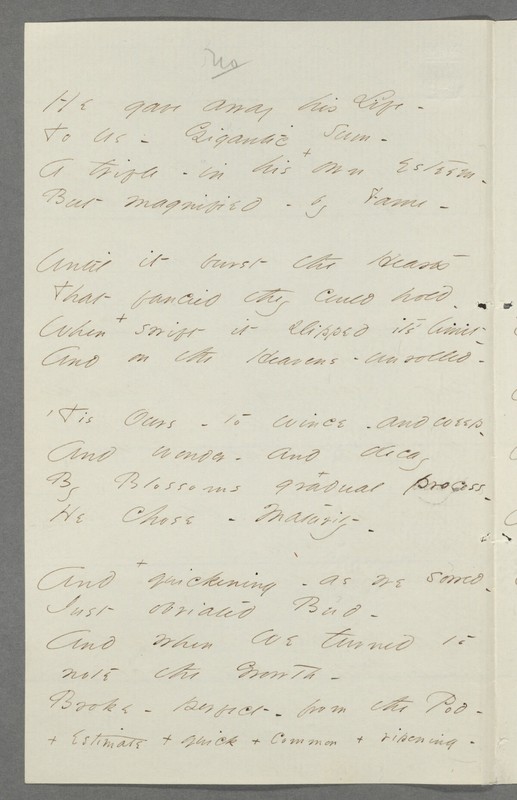 no
He gave away his Life -
To Us - Gigantic Sum -
A trifle - in his + own Esteem -
But magnified - by Fame -
Until it burst the Hearts
That fancied they could hold -
When + swift it slipped it's limit -
And on the Heavens - unrolled -
'Tis Ours - to wince - and weep -
And wonder - and decay
By Blossoms + gradual process -
He chose - Maturity -
And + quickening - as we sowed -
Just obviated Bud -
And when We turned to
note the Growth -
Broke - perfect - from the Pod -
+ Estimate + quick + Common + ripening -